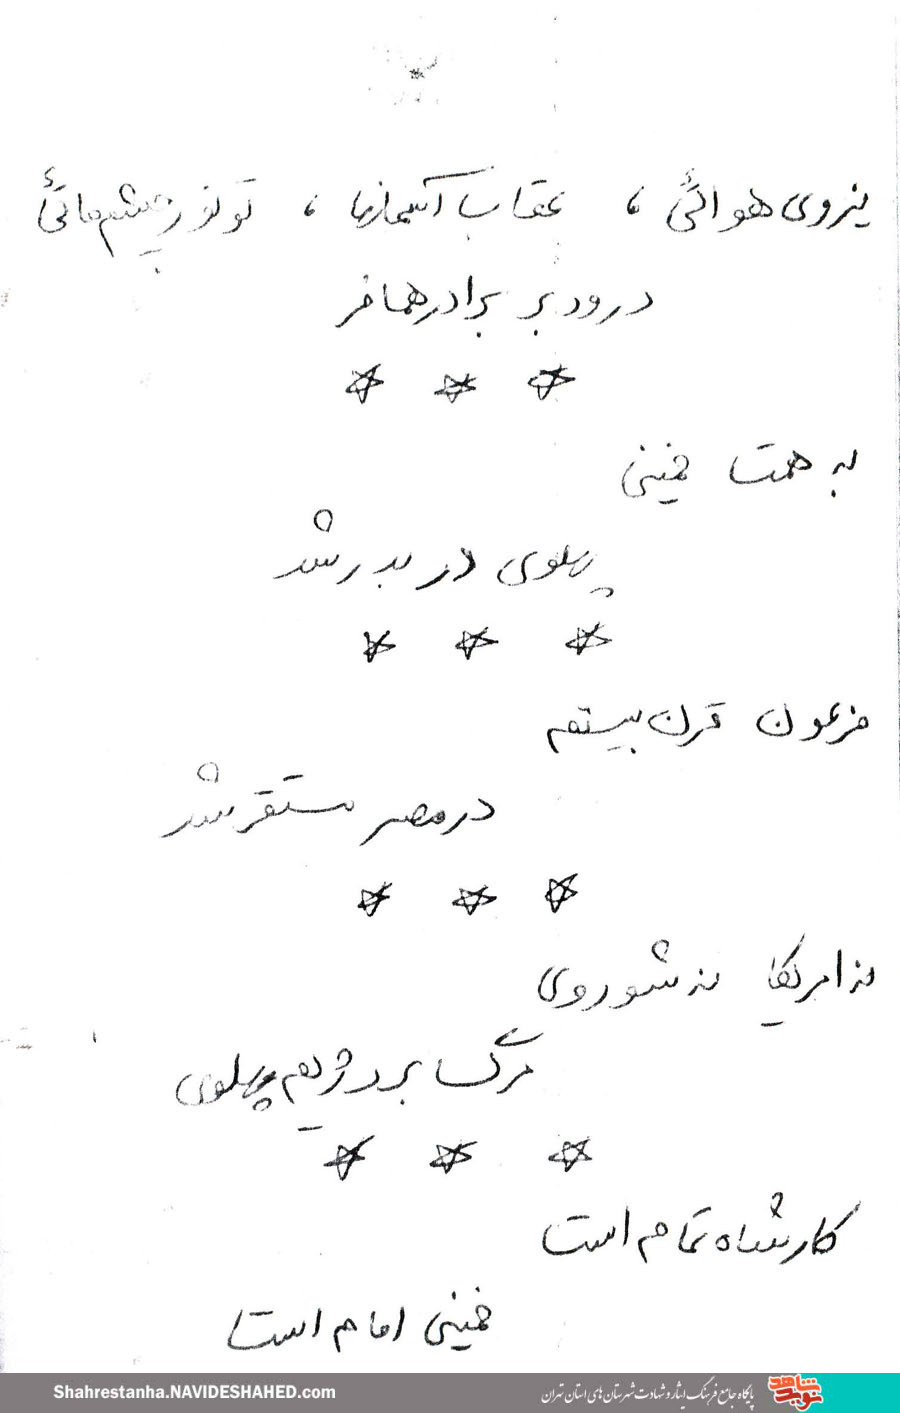 نیروی هوائی ، عقاب آسمانها ، تو نور چشم مائی
درود بر برادر همافر
به همت خمینی
پهلوی در بدر شد
فرعون قرن بیستم
در مصر مستقر شد
نه امریکا نه شوروی
مرگ بر رژیم پهلوی
کار شاه تمام است
خمینی امام است
Shahrestanha.NAVIDESHAHED.com
پایگاه جامع فرهنگ ایثار و شهادت شهرستان های استان تهران
نوید شاهد